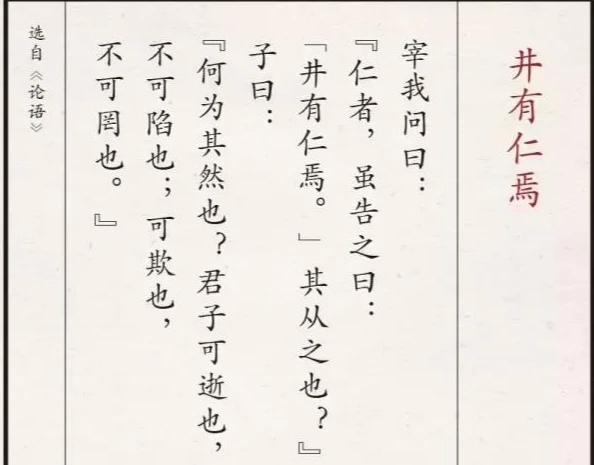 井有仁焉
宰我问曰：
『仁者，虽告之曰：
「井有仁焉。」其从之也？』
子曰：
『何为其然也？君子可逝也，
不可陷也；可欺也，
不可罔也。』
选自《论语》